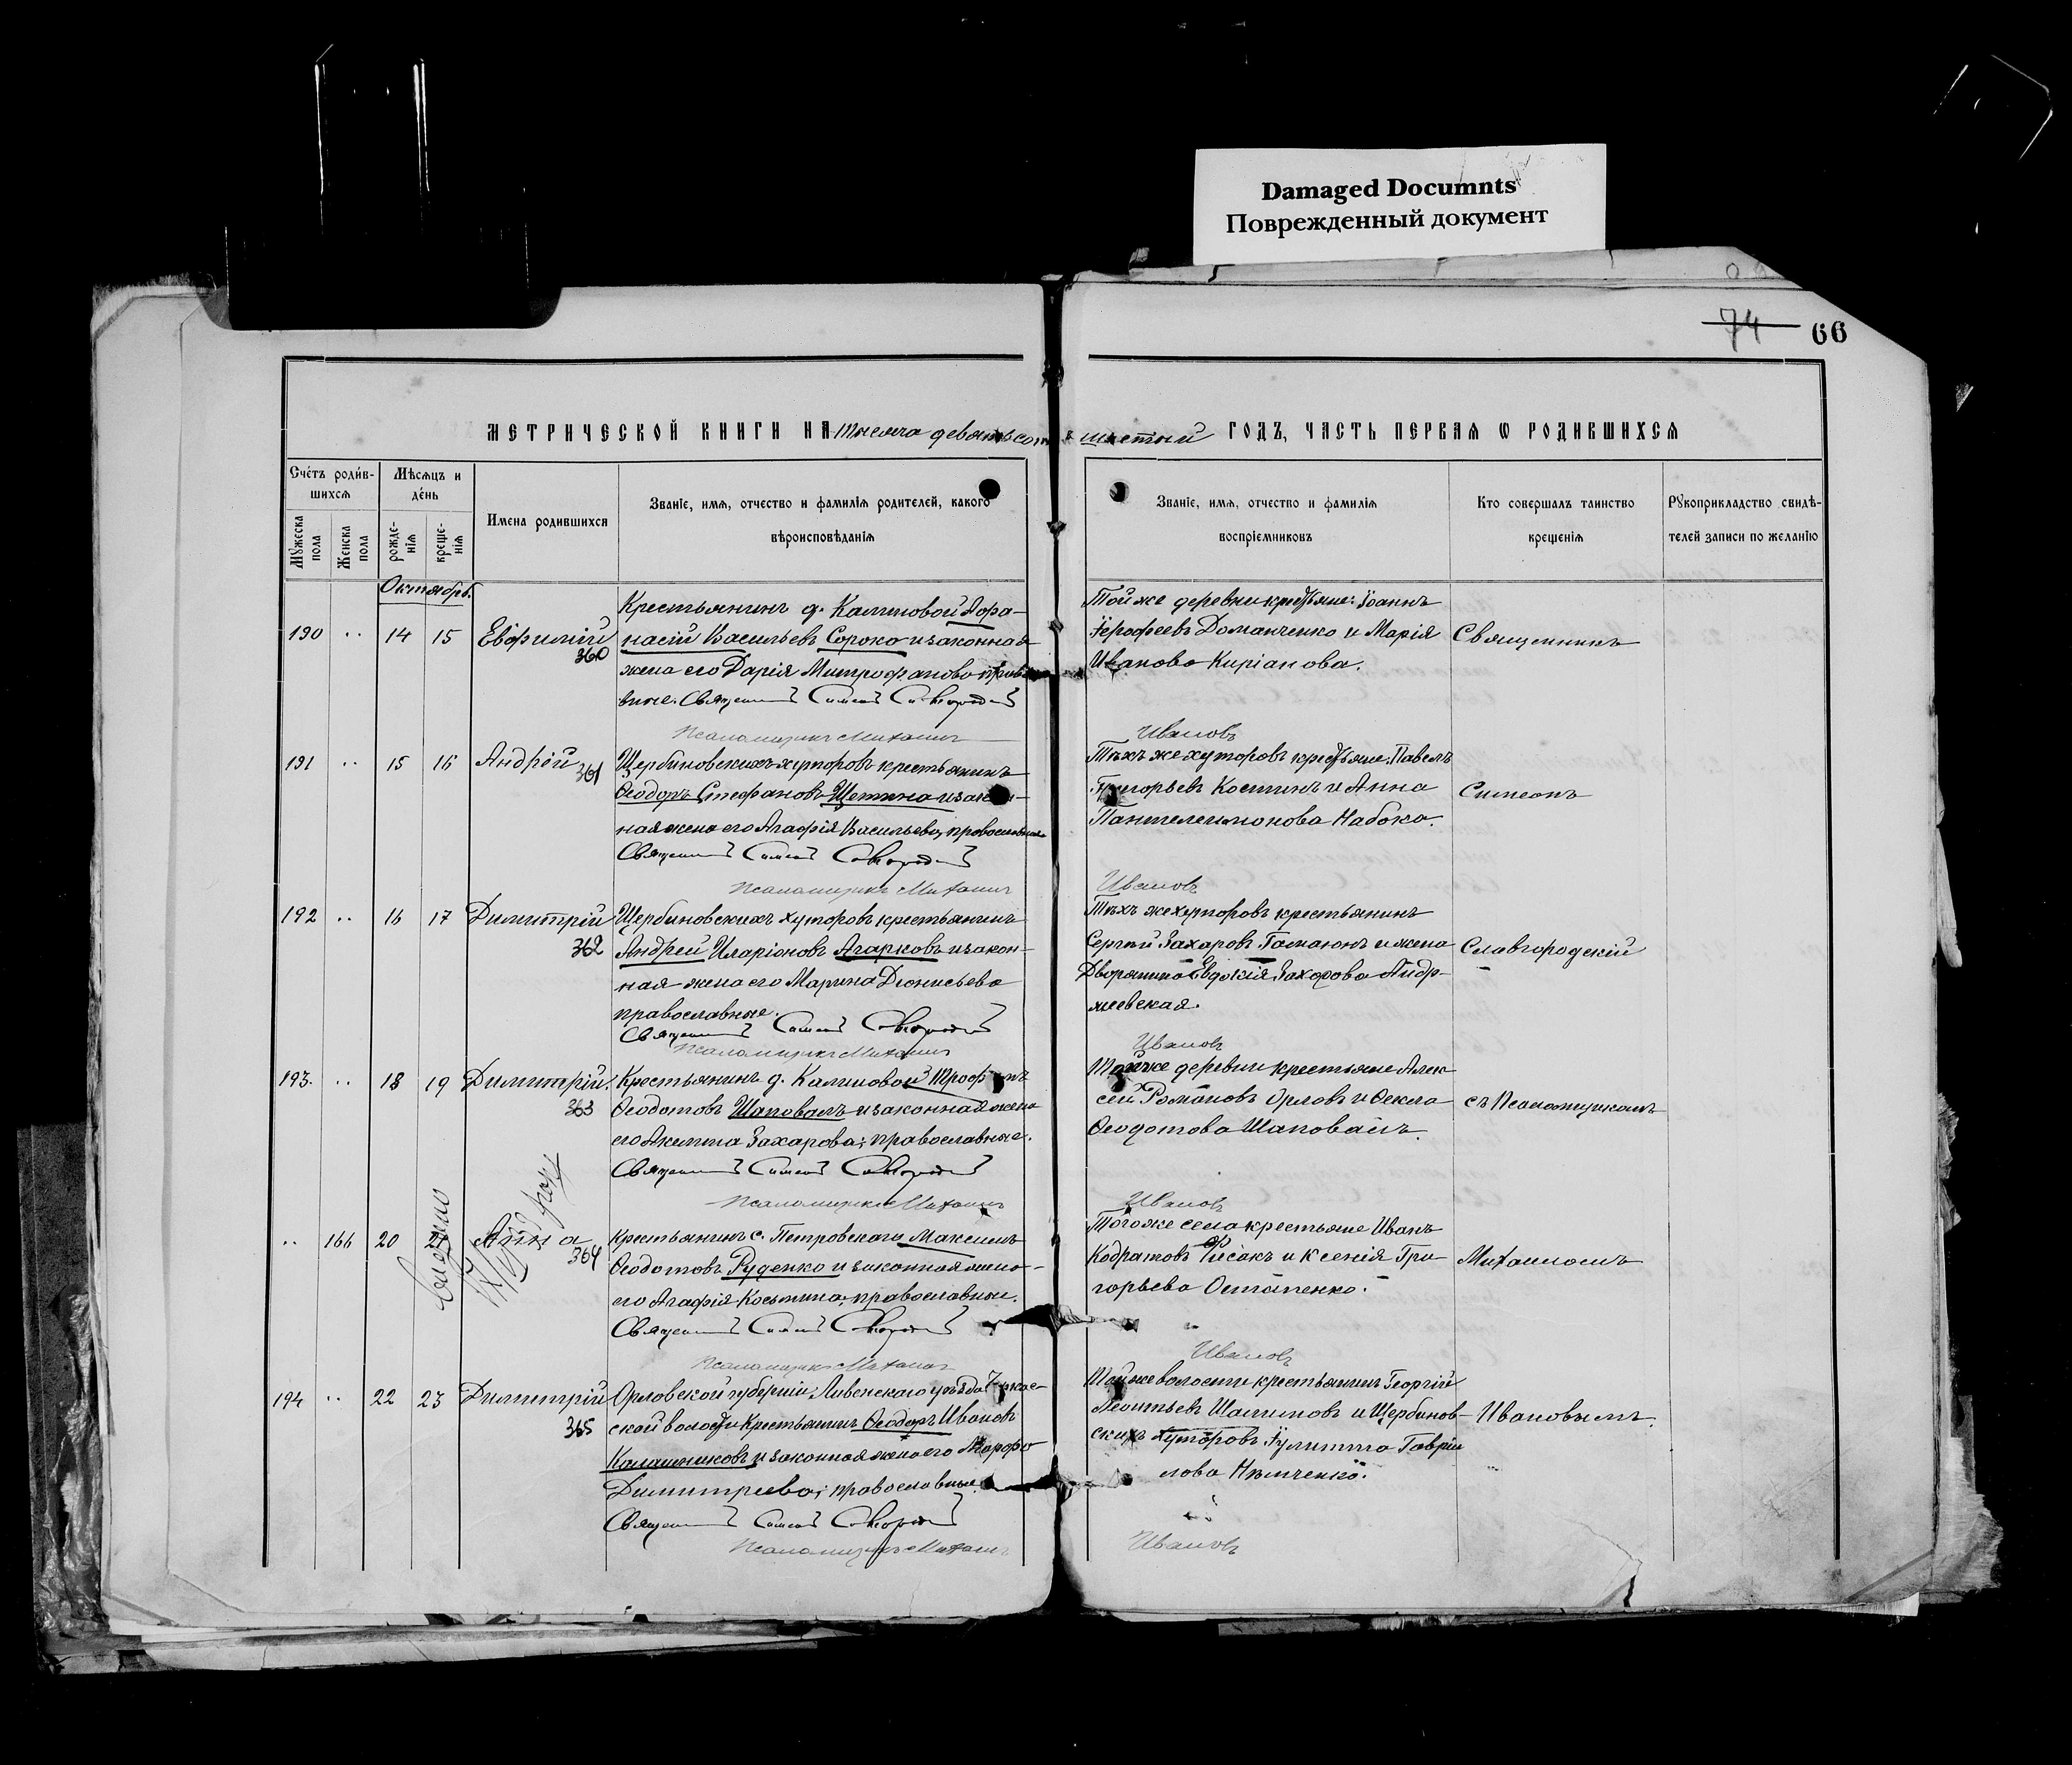 Damaged Documnts
Поврежденный документ
74 66
МЕТРИЧЕСКОЙ КНИГИ НА тысяча девятьсот шестый ГОДЪ, ЧАСТЬ ПЕРВАЯ Ѡ РОДИВШИХСЯ
Счетъ родившихся
Мужеска пола
Женска пола
Мѣсяцъ и день
рожденія
крещенія
Имена родившихся
Званіе, имя, отчество и фамилія родителей, какого
вѣроисповѣданія
Званіе, имя, отчество и фамилія
воспріемниковъ
Кто совершалъ таинство
крещенія
Рукоприкладство свидѣ-
телей записи по желанію
Октябрь.
190 .. 14 15 Евѳимій 360
Крестьянинъ д. Калиновой Афа-
насій Васильевъ Сорока и законная
жена его Дарія Митрофанова
Священникъ Симеонъ Славгородскій
Псаломщикъ Михаилъ
Той же деревни крестьяне: Іоаннъ
Іерофеевъ Доманченко и Марія
Иванова Киріанова.
Ивановъ
Священникъ
191 .. 15 16 Андрей 361
Щербиновскихъ хуторовъ крестьянинъ
Ѳеодоръ Стефановъ Щетина и закон-
ная жена его Агафія Васильева, православные
Священникъ Симеонъ Славгородскій
Псаломщикъ Михаилъ
Тѣхъ же хуторовъ крестьяне: Павелъ
Григорьевъ Костинъ и Анна
Пантелеимонова Набока.
Ивановъ
Симеонъ
192 .. 16 17 Димитрій 362
Щербиновскихъ хуторовъ крестьянинъ
Андрей Иларіоновъ Агарковъ и закон-
ная жена его Марина Діонисьева
православные.
Священникъ Симеонъ Славгородскій
Псаломщикъ Михаилъ
Тѣхъ же хуторовъ крестьянинъ
Сергій Захаровъ Гамаюнъ и жена
Дворянина Евдокія Захарова Андр-
жеевская.
Ивановъ
Славгородскій
193. .. 18 19 Димитрій. 363
Крестьянинъ д. Калиновой Трофимъ
Ѳеодотовъ Шаповалъ и законная жена
его Акилина Захарова; православные.
Священникъ Симеонъ Славгородскій
Псаломщикъ Михаилъ
Той же деревни крестьяне Алек-
сей Романовъ Орловъ и Ѳекла
Ѳеодотова Шаповалъ.
Ивановъ
съ Псаломщикомъ
.. 166 20 21 Анна 364
Крестьянинъ с. Петровскаго Максимъ
Ѳеодотовъ Руденко и законная жена
его Агафія Косьмина; православные.
Священникъ Симеонъ Славгородскій
Псаломщикъ Михаилъ
Того же села крестьяне Иванъ
Кодратовъ и Ксенія Гри-
горьева Остапенко.
Ивановъ
Михаиломъ
194 .. 22 23 Димитрій 365
Орловской губерніи Ливенскаго уѣзда
ской волости крестьянинъ Ѳеодоръ Ивановъ
Калашниковъ и законная жена его
Димитріева; православные.
Священникъ Симеонъ Славгородскій
Псаломщикъ Михаилъ
Той же волости крестьянинъ Георгій
Леонтьевъ Шалимовъ и Щербинов-
скихъ хуторовъ Іулитта Гаврі-
лова Нѣмченко.
Ивановъ
Ивановымъ.